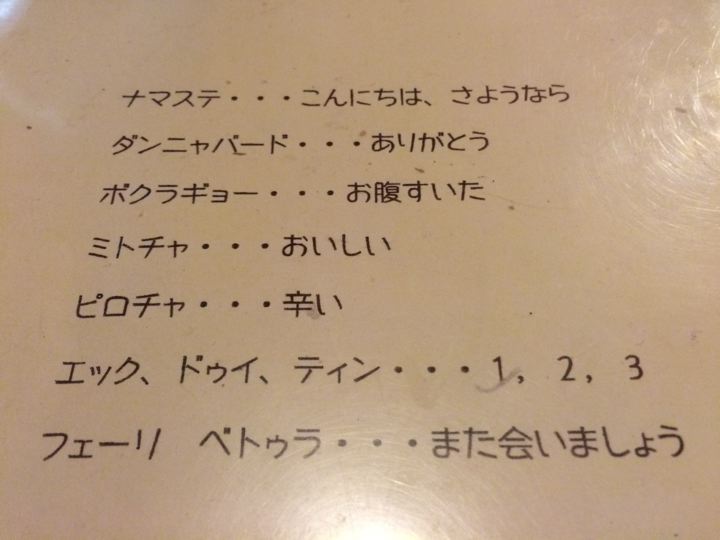 ナマステ・・・こんにちは、さようなら
ダンニャバード・・・ありがとう
ボクラギョー・・・お腹すいた
ミトチャ・・・おいしい
ピロチャ・・・辛い
エック、ドゥイ、ティン・・・1, 2, 3
フェーリ　ベトゥラ・・・また会いましょう